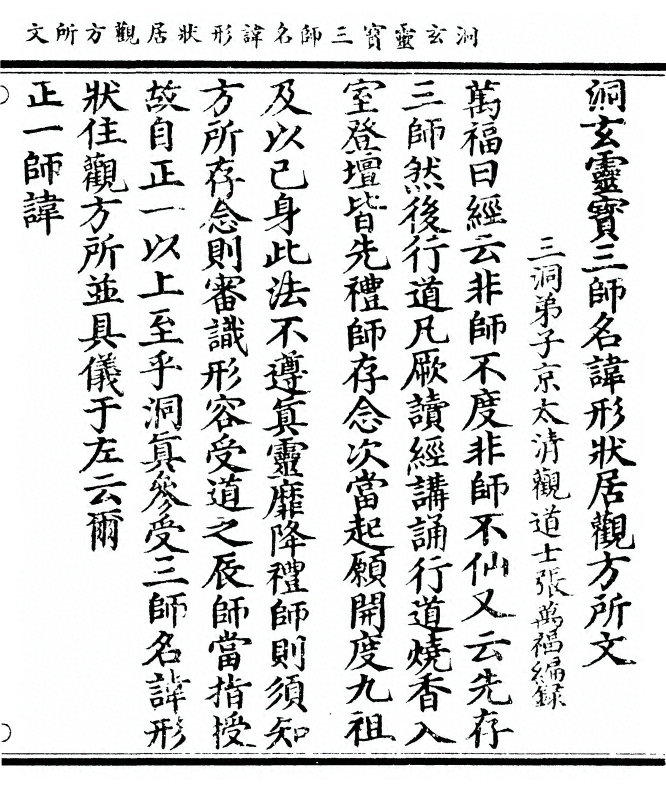 洞玄靈寳三師名諱形狀居觀方所文
洞玄靈寳三師名諱形狀居觀方所文
三洞弟子京太清觀道士張萬福編録
萬福曰經云非師不度非師不仙又云先存
三師然後行道凡厥讀經講誦行道燒香入
室登壇皆先禮師存念次當起願開度九祖
及以己身此法不遵眞靈靡降禮師則須知
方所存念則審識形容受道之辰師當指授
故自正一以上至乎洞眞參受三師名諱形
狀住觀方所並具儀于左云爾
正一師諱